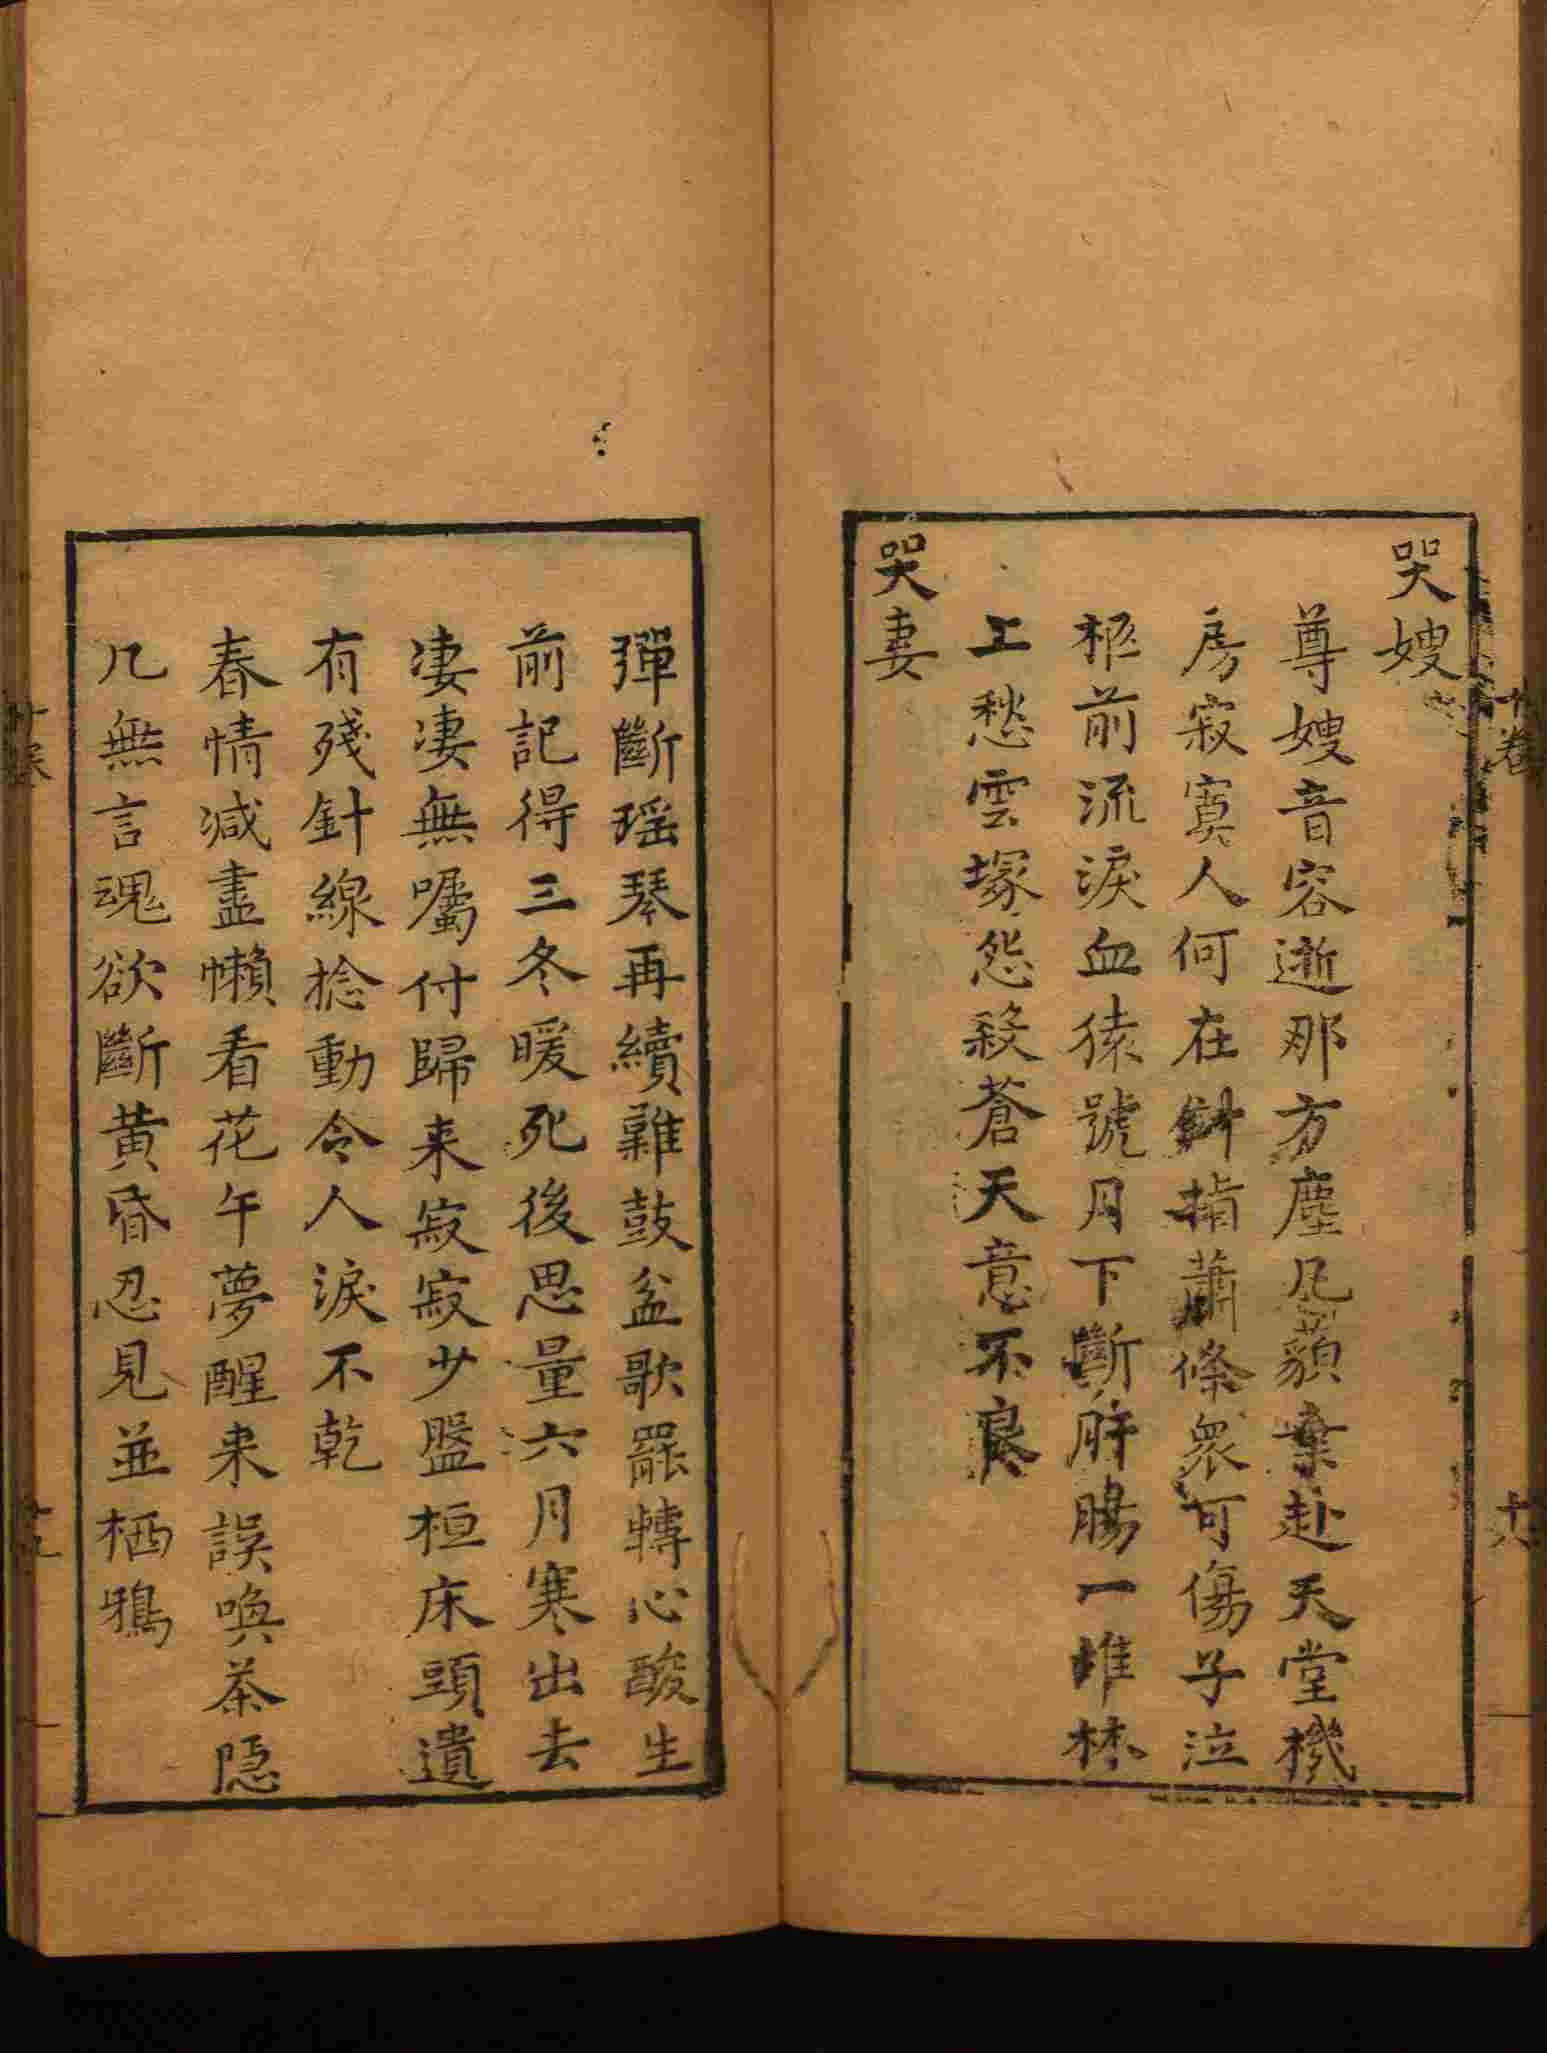 哭嫂
尊嫂音容逝那方塵凡藐棄赴天堂機
房寂寞人何在針指蕭條眾可傷子泣
柩前流淚血猿號月下斷肝腸一堆林
上愁雲塚怨殺蒼天意不良
哭妻
彈斷瑤琴再續難鼓盆歌罷轉心酸生
前記得三冬暖死後思量六月寒出去
凄凄無囑付歸来寂寂少盤桓床頭遺
有殘針線捻動令人淚不乾
春情減盡懶看花午夢醒来誤喚茶隱
几無言魂欲斷黃昏忍見並栖鴉
十卷
十八
十九